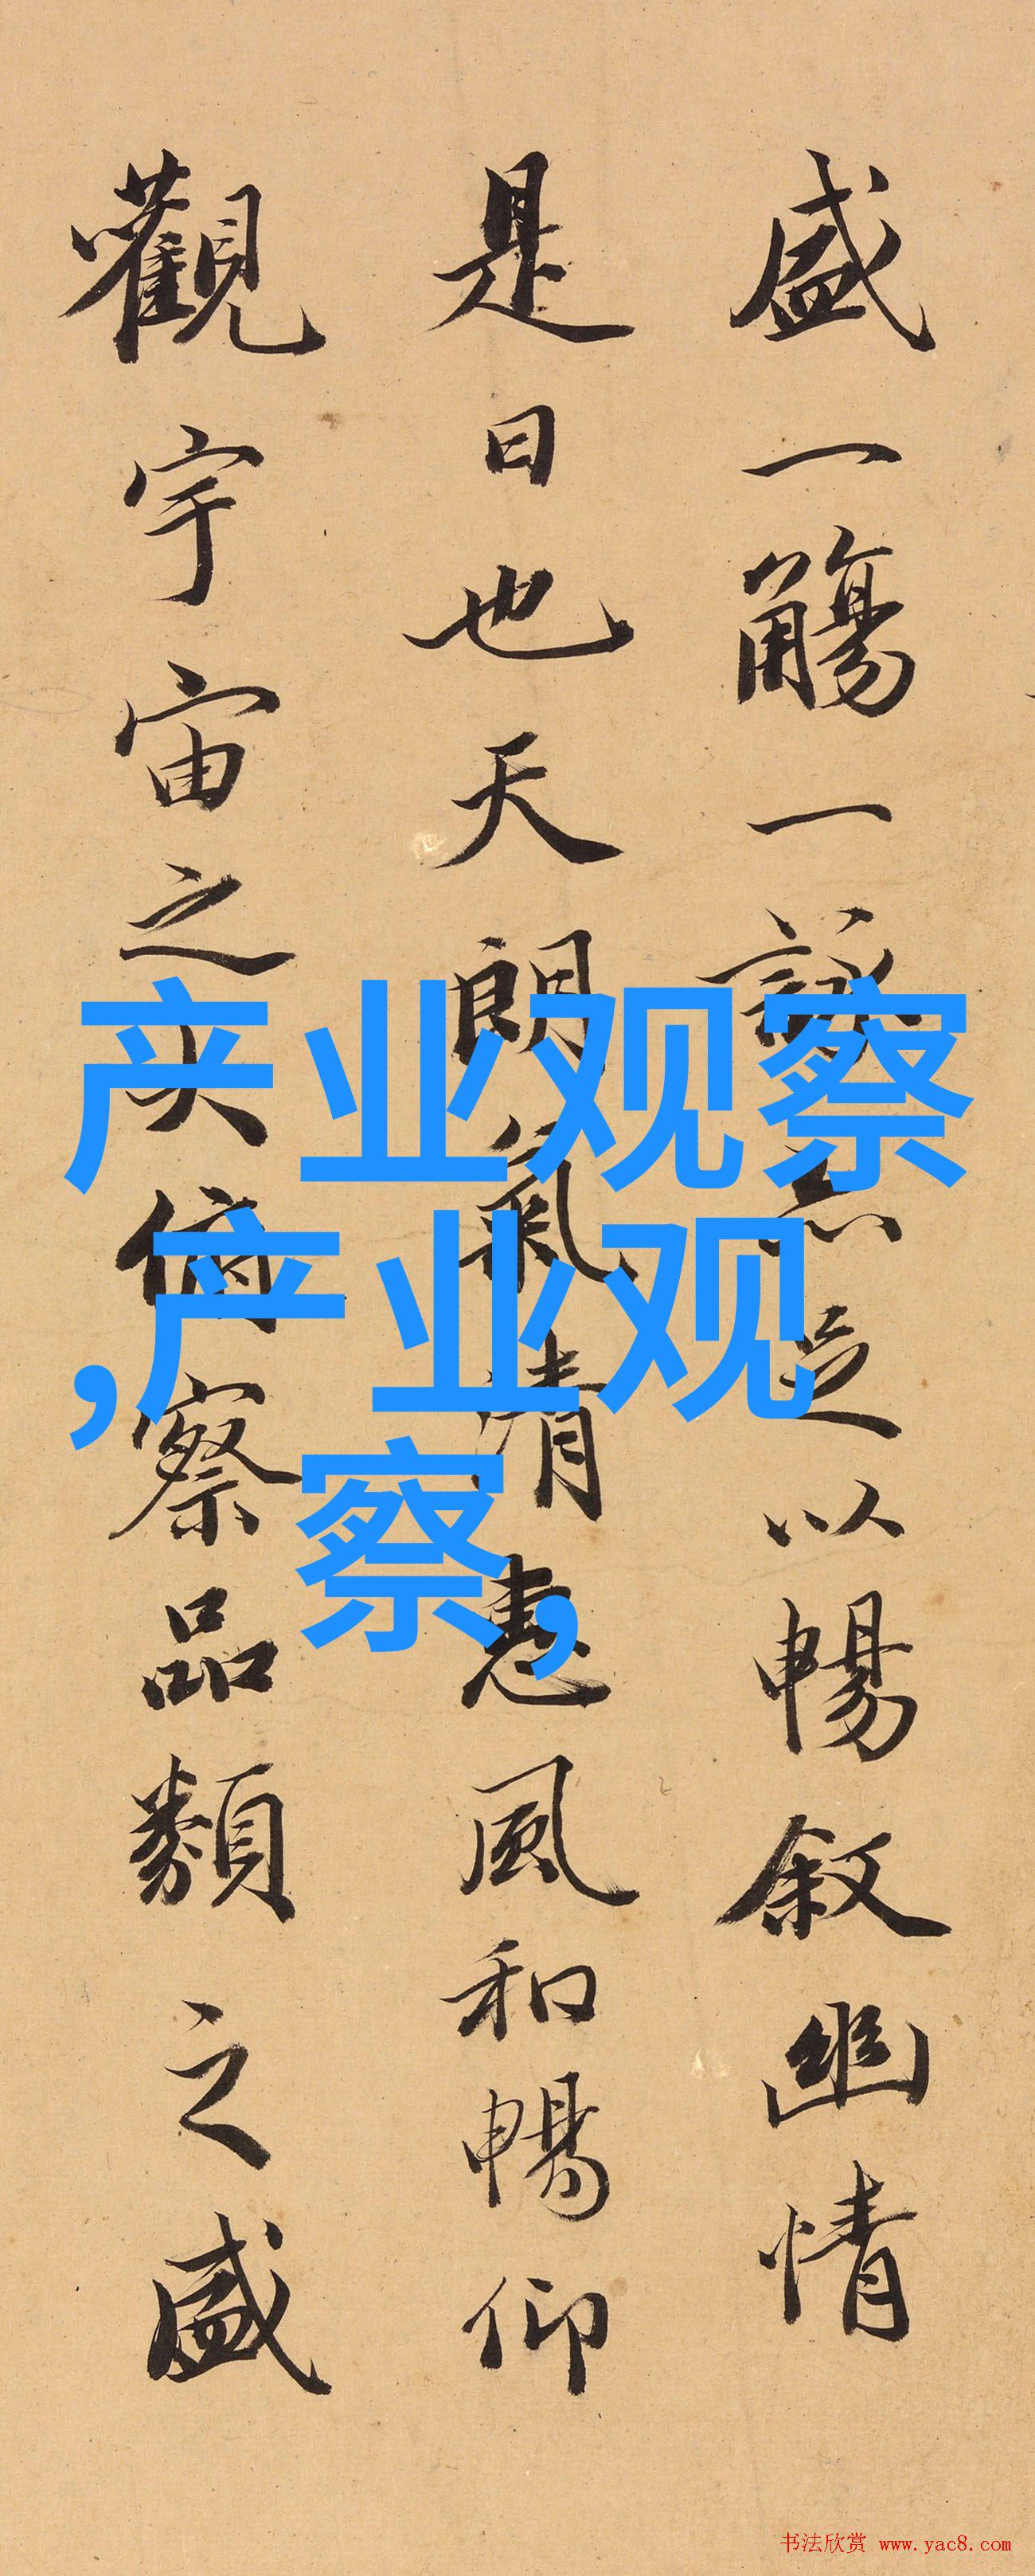 盛一觴一詠亦足以暢叙幽情
是日也天朗氣清惠風和暢仰
觀宇宙之大俯察品類之盛
产业观察
,产业观
察,
书法欣赏 www.yac8.com